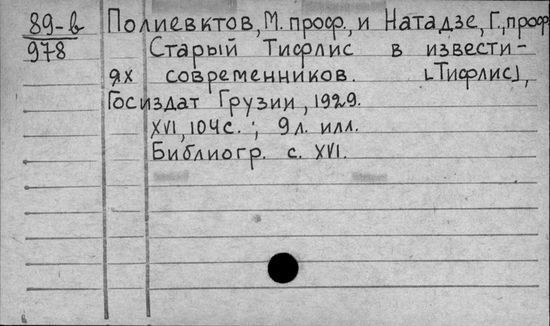 89-в Полиевктов, М. проф., и Натадзе, Г., проф.
978 Старый Тифлис в извести-
ях современников. [Тифлис],
Госиздат Грузии, 1929.
XVI, 104с.; 9л. илл.
Библиогр. с. XVI.